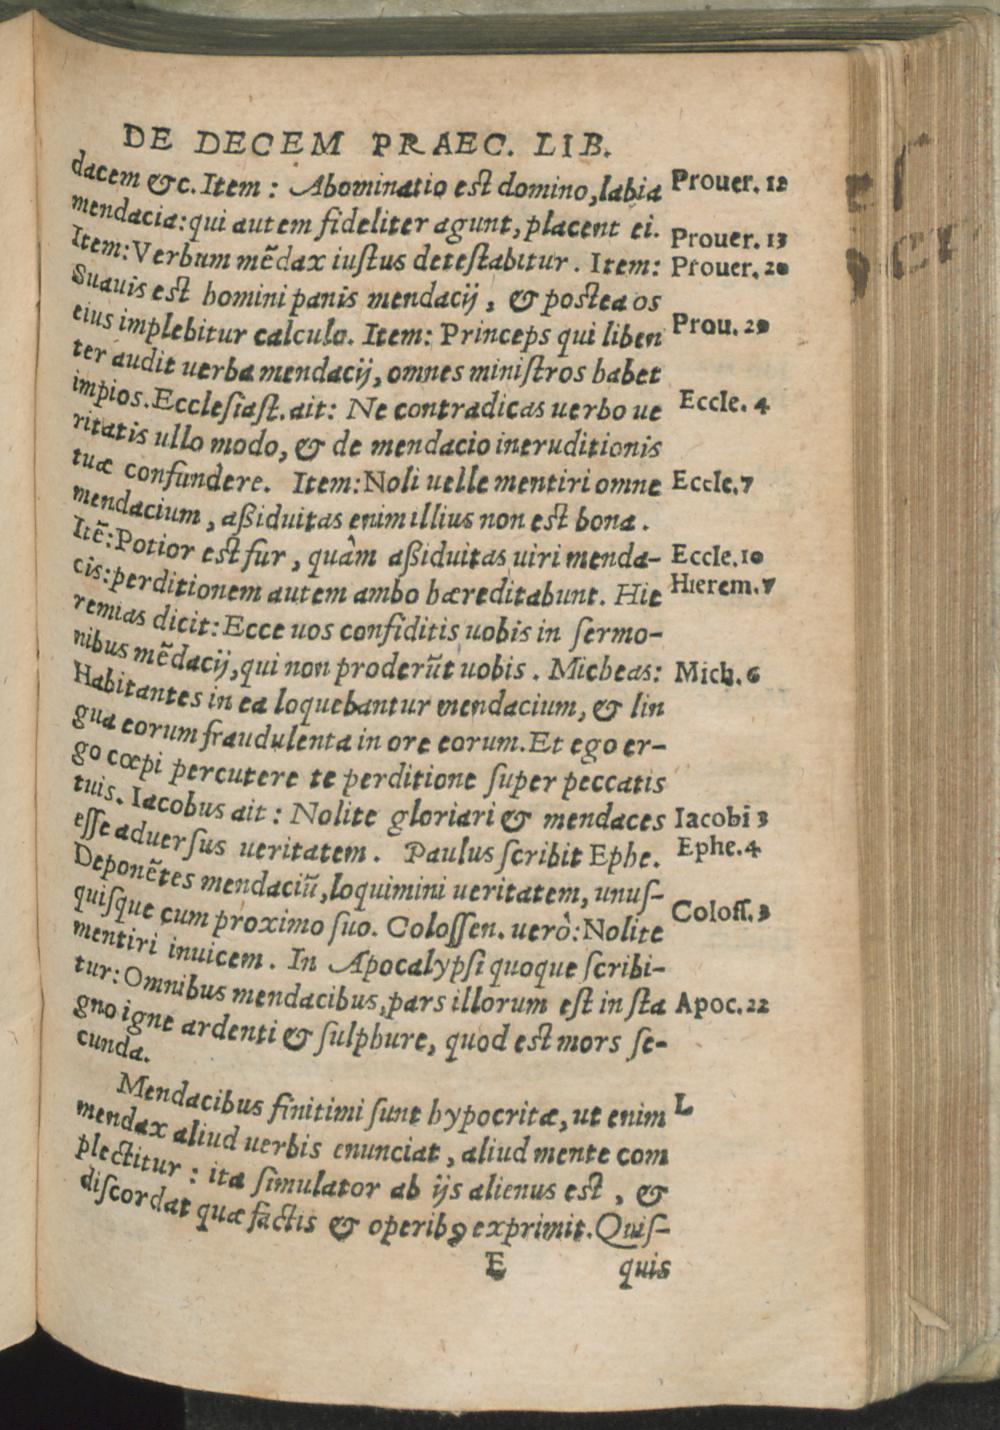 DE DECEM PRAEC. LIB.
dacem &c. Item: Abominatio est domino, labia
Prouer. 12
mendacia: qui autem fideliter agunt, placent ei.
Prouer. 13
Item: Verbum mẽdax iustus detestabitur. Item:
Prouer. 20
Suauis est homini panis mendacij, & postea os
eius implebitur calculo. Item: Princeps qui liben
Prou. 29
ter audit uerba mendacij, omnes ministros habet
impios. Ecclesiast. ait: Ne contradicas uerbo ue
Eccle. 4
ritatis ullo modo, & de mendacio ineruditionis
tuæ confundere. Item: Noli uelle mentiri omne
Eccle. 7
mendacium, aßiduitas enim illius non est bona.
Itẽ: Potior est fur, quàm aßiduitas uiri menda-
Eccle. 10
cis: perditionem autem ambo hæreditabunt. Hie
Hierem. 7
remias dicit: Ecce uos confiditis uobis in sermo-
nibus mẽdacij, qui non proderũt uobis. Micheas:
Mich. 6
Habitantes in ea loquebantur mendacium, & lin
gua eorum fraudulenta in ore eorum. Et ego er-
go cœpi percutere te perditione super peccatis
tuis. Iacobus ait: Nolite gloriari & mendaces
Iacobi 3
esse aduersus ueritatem. Paulus scribit Ephe.
Ephe. 4
Deponẽtes mendaciũ, loquimini ueritatem, unus-
quisque cum proximo suo. Colossen. uerò: Nolite
Coloss. 3
mentiri inuicem. In Apocalypsi quoque scribi-
tur: Omnibus mendacibus, pars illorum est in sta
Apoc. 22
gno igne ardenti & sulphure, quod est mors se-
cunda.
Mendacibus finitimi sunt hypocritæ, ut enim
L
mendax aliud uerbis enunciat, aliud mente com
plectitur: ita simulator ab ijs alienus est, &
discordat quæ factis & operibꝰ exprimit. Quis-
E
quis